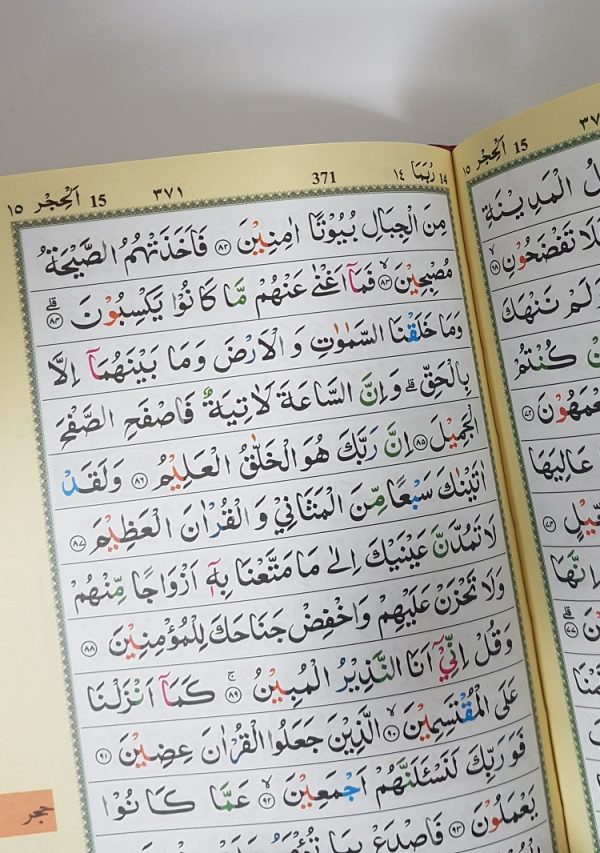 ١٥ اَلْحِجْر 15 ٣٧١ 371 رُبَمَا ١٤ 14
مِنَ الْجِبَالِ بُيُوْتًا اٰمِنِيْنَ ﴿٨٢﴾ فَاَخَذَتْهُمُ الصَّيْحَةُ
مُصْبِحِيْنَ ﴿٨٣﴾ فَمَآ اَغْنٰى عَنْهُمْ مَّا كَانُوْا يَكْسِبُوْنَ ﴿٨٤﴾
وَمَا خَلَقْنَا السَّمٰوٰتِ وَالْاَرْضَ وَمَا بَيْنَهُمَآ اِلَّا
بِالْحَقِّ ۗ وَاِنَّ السَّاعَةَ لَاٰتِيَةٌ فَاصْفَحِ الصَّفْحَ
الْجَمِيْلَ ﴿٨٥﴾ اِنَّ رَبَّكَ هُوَ الْخَلّٰقُ الْعَلِيْمُ ﴿٨٦﴾ وَلَقَدْ
اٰتَيْنٰكَ سَبْعًا مِّنَ الْمَثَانِيْ وَالْقُرْاٰنَ الْعَظِيْمَ ﴿٨٧﴾
لَا تَمُدَّنَّ عَيْنَيْكَ اِلٰى مَا مَتَّعْنَا بِهٖٓ اَزْوَاجًا مِّنْهُمْ
وَلَا تَحْزَنْ عَلَيْهِمْ وَاخْفِضْ جَنَاحَكَ لِلْمُؤْمِنِيْنَ ﴿٨٨﴾
وَقُلْ اِنِّيْٓ اَنَا النَّذِيْرُ الْمُبِيْنُ ﴿٨٩﴾ كَمَآ اَنْزَلْنَا
عَلَى الْمُقْتَسِمِيْنَ ﴿٩٠﴾ الَّذِيْنَ جَعَلُوا الْقُرْاٰنَ عِضِيْنَ ﴿٩١﴾
فَوَرَبِّكَ لَنَسْـَٔلَنَّهُمْ اَجْمَعِيْنَ ﴿٩٢﴾ عَمَّا كَانُوْا
يَعْمَلُوْنَ ﴿٩٣﴾ فَاصْدَعْ بِمَا تُؤْمَرُ
حجر
١٥ اَلْحِجْر 15
الْمَدِيْنَةِ
تَفْضَحُوْنِ ﴿٦٨﴾
نَنْهَكَ
كُنْتُمْ
عَالِيَهَا